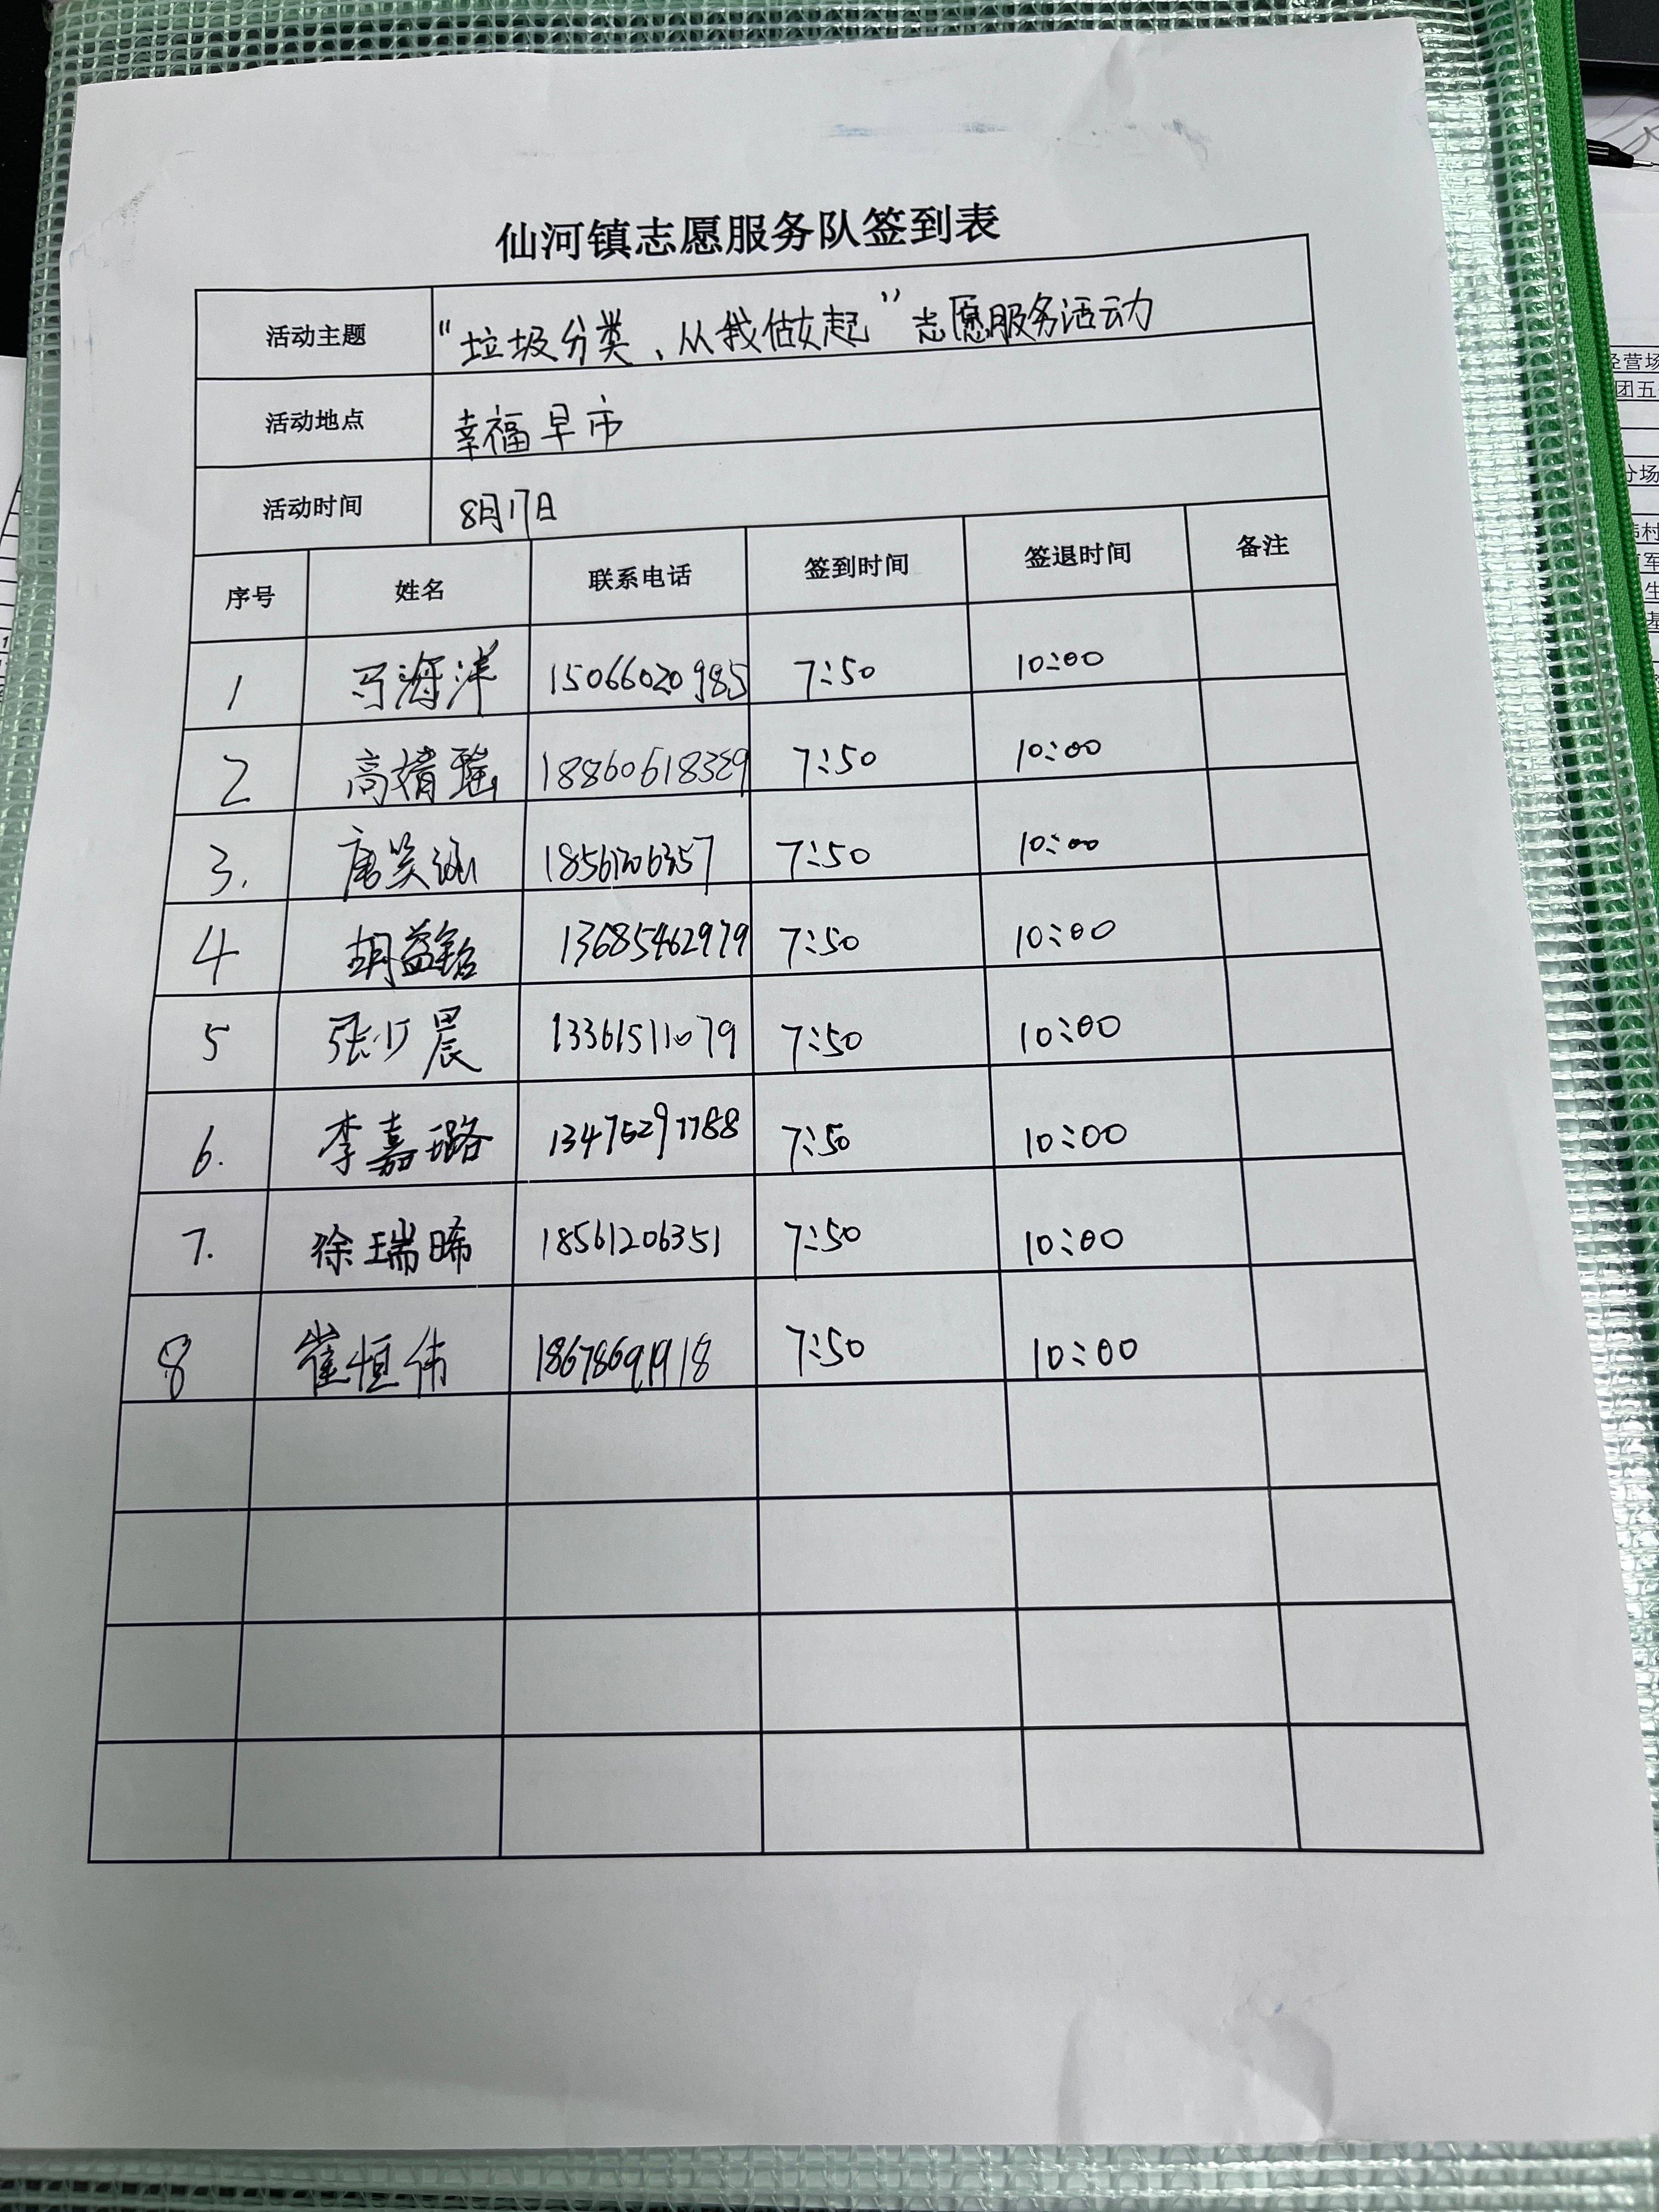 仙河镇志愿服务队签到表
活动主题 “垃圾分类、从我做起”志愿服务活动
活动地点 幸福早市
活动时间 8月17日
序号 姓名 联系电话 签到时间 签退时间 备注
1 马海洋 15066020985 7:50 10:00
2 高婧瑶 18860618329 7:50 10:00
3. 唐笑涵 18561206357 7:50 10:00
4 胡益铭 13685462979 7:50 10:00
5 张少晨 13361511079 7:50 10:00
6. 李嘉璐 13475297788 7:50 10:00
7. 徐瑞晞 18561206351 7:50 10:00
8 崔恒伟 18678691918 7:50 10:00
经营场
团五
分场
村
军
生
基